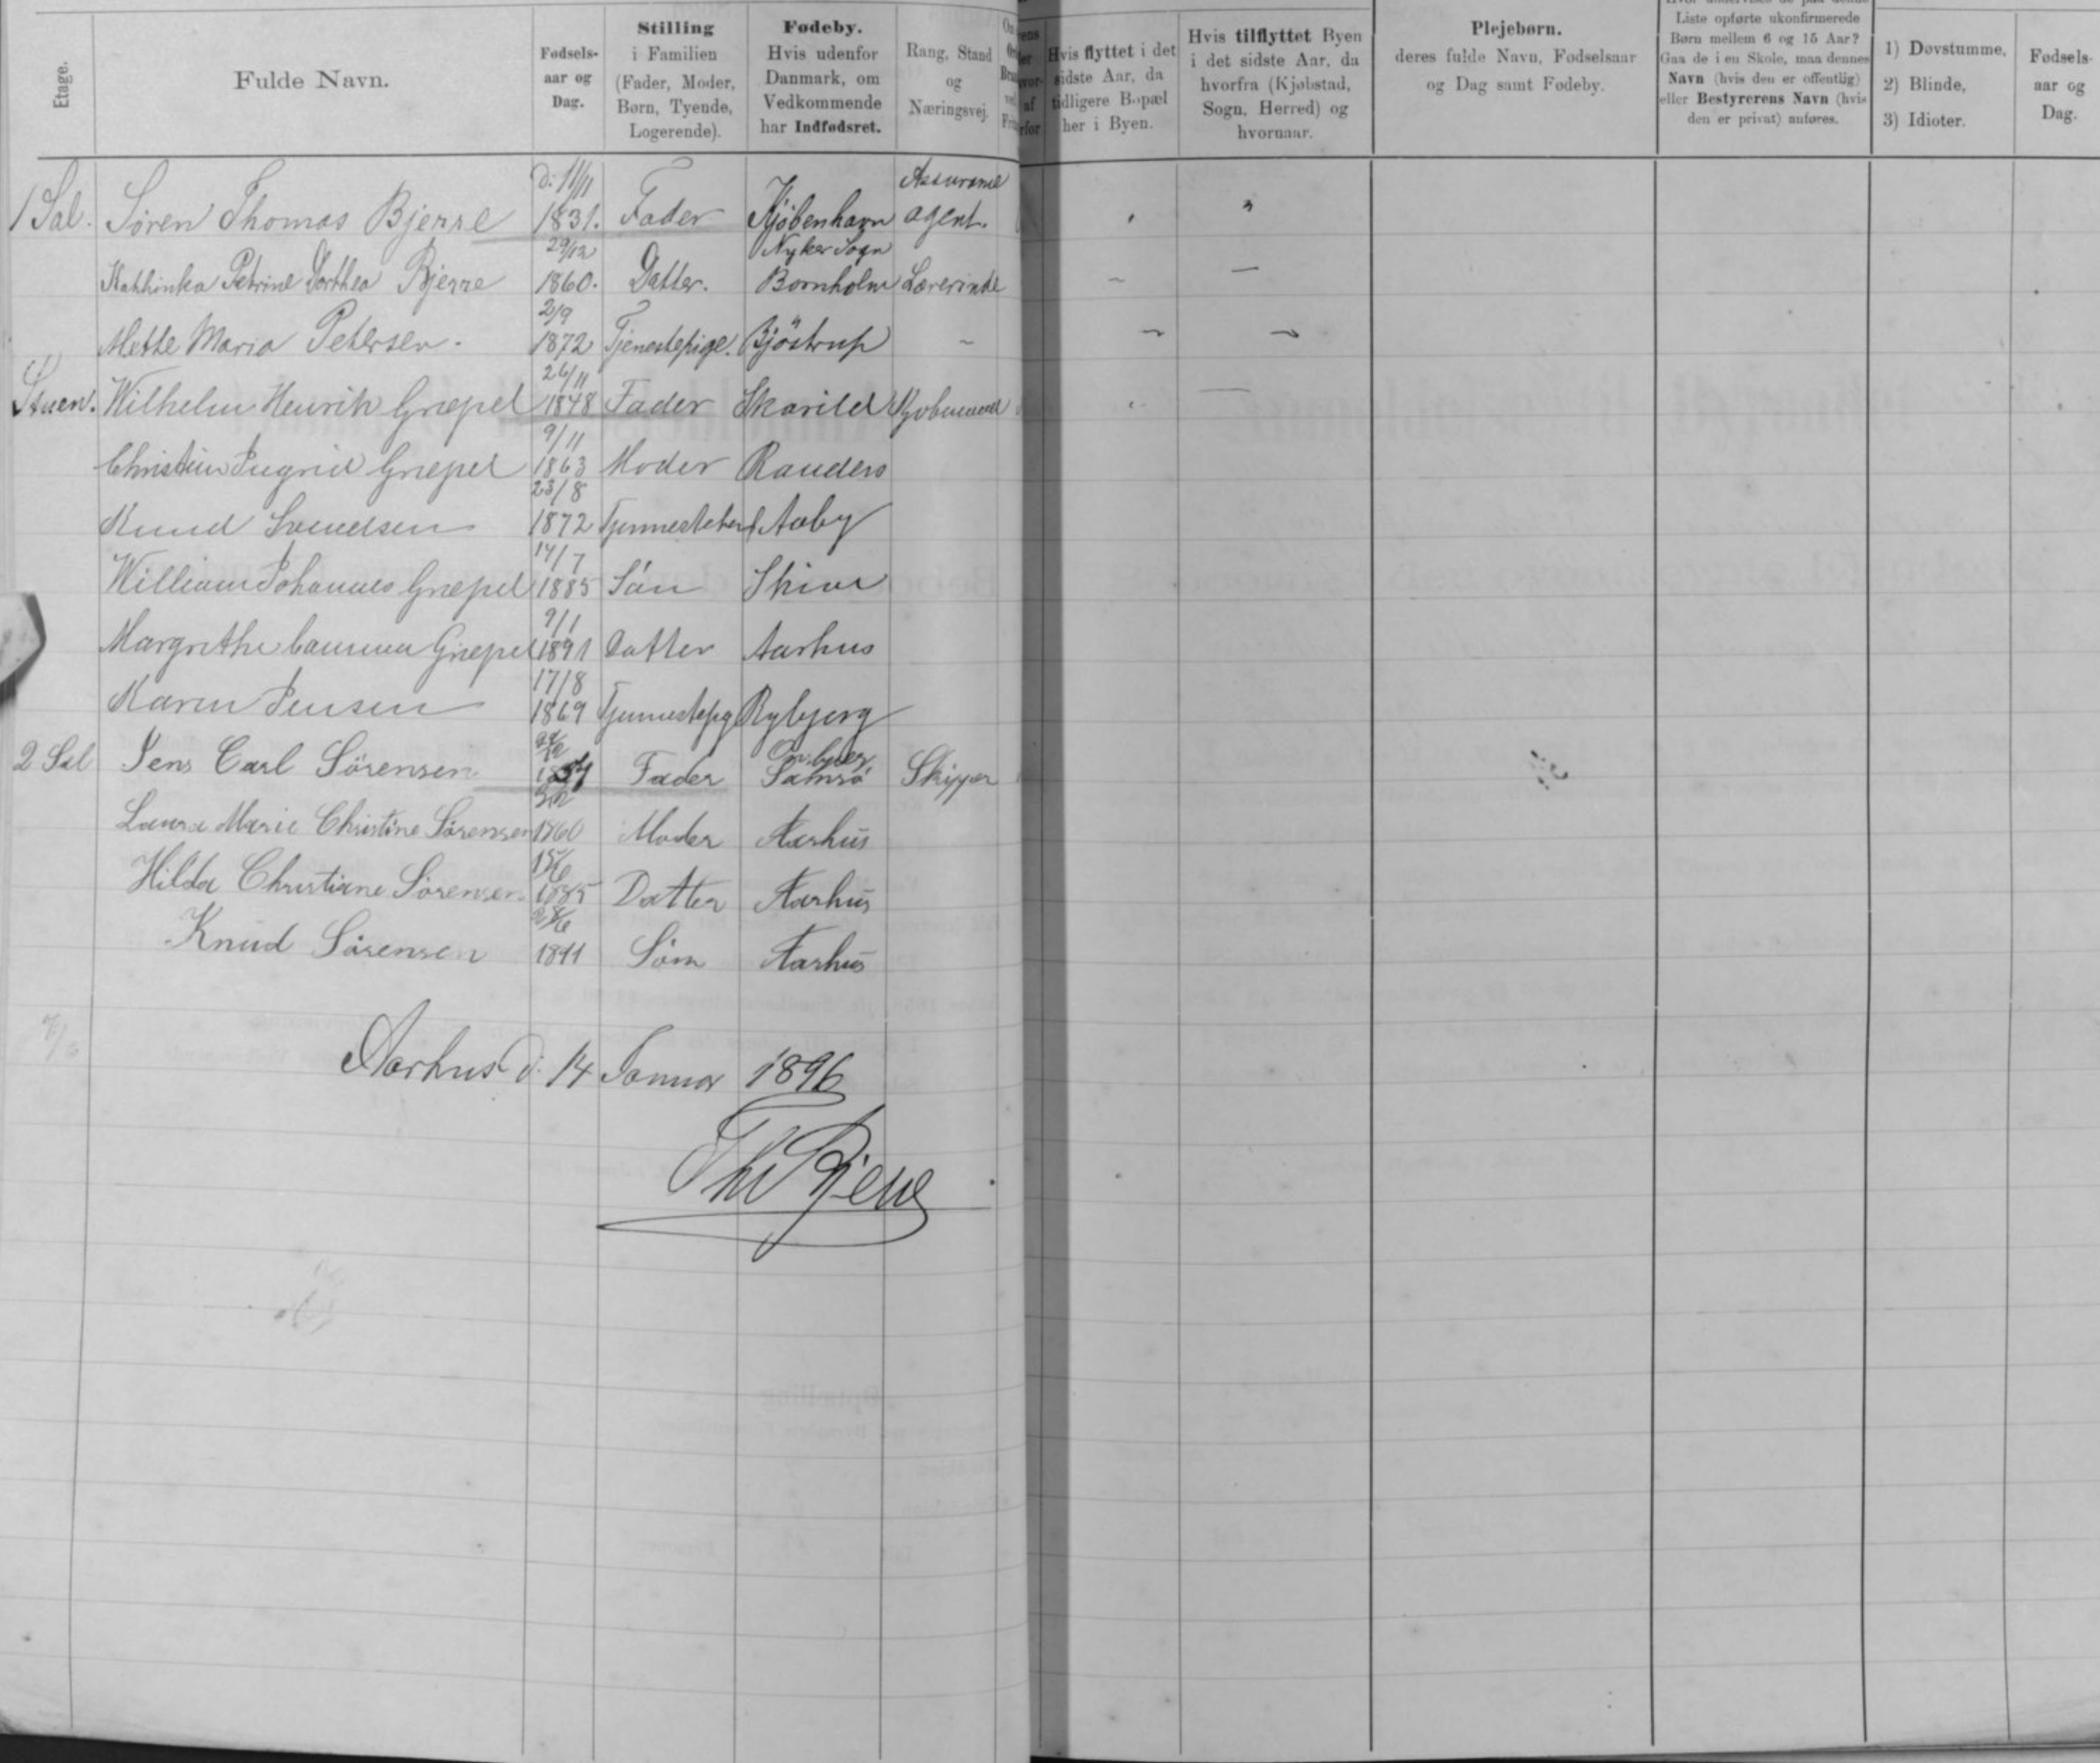 Etage.
Fulde Navn.
Fødsels-
aar og
Dag.
Stilling
i Familien
(Fader, Moder,
Børn, Tyende,
Logerende).
Fødeby.
Hvis udenfor
Danmark, om
Vedkommende
har Indfødsret.
Rang, Stand
og
Næringsvej.
Hvis flyttet i det
sidste Aar, da
tidligere Bopæl
her i Byen.
Hvis tilflyttet Byen
i det sidste Aar, da
hvorfra (Kjøbstad,
Sogn, Herred) og
hvornaar.
Plejebørn.
deres fulde Navn, Fødselsaar
og Dag samt Fødeby.
Liste opførte ukonfirmerede
Børn mellem 6 og 15 Aar?
Gaa de i en Skole, maa dennes
Navn (hvis den er offentlig)
eller Bestyrerens Navn (hvis
den er privat) anføres.
1) Døvstumme,
2) Blinde,
3) Idioter.
Fødsels-
aar og
Dag.
d: 11/11 Assurance
1 Sal. Søren Thomas Bjerre 1831. Fader Kjøbenhavn agent.
29/12 Nyker Sogn
Kathinka Petrine Dorthea Bjerre 1860. Datter. Bornholm Lærerinde
2/9
Mette Maria Petersen. 1872 Tjenestepige. Bjöstrup
26/11
Stuen. Wilhelm Henrik Græpel 1848 Fader Skarild Kjobmand
9/11
Christine Ingrid Græpel 1863 Moder Randers
23/8
Knud 1872 Aaby
14/7
William Johannes Græpel 1885 Sön Skive
9/1
Margrethe Græpel 1891 Datter Aarhus
17/8
Karen Jensen 1869 Rybjerg
2 Sal Jens Carl Sörensen Fader Samsö Skipper
Laura Marie Christine Sörensen 1860 Moder Aarhus
15/6
Hilda Christiane Sörensen 1885 Datter Aarhus
28/6
Knud Sörensen 1891 Sön Aarhus
Aarhus d. 14 Januar 1896
Th Bjerre